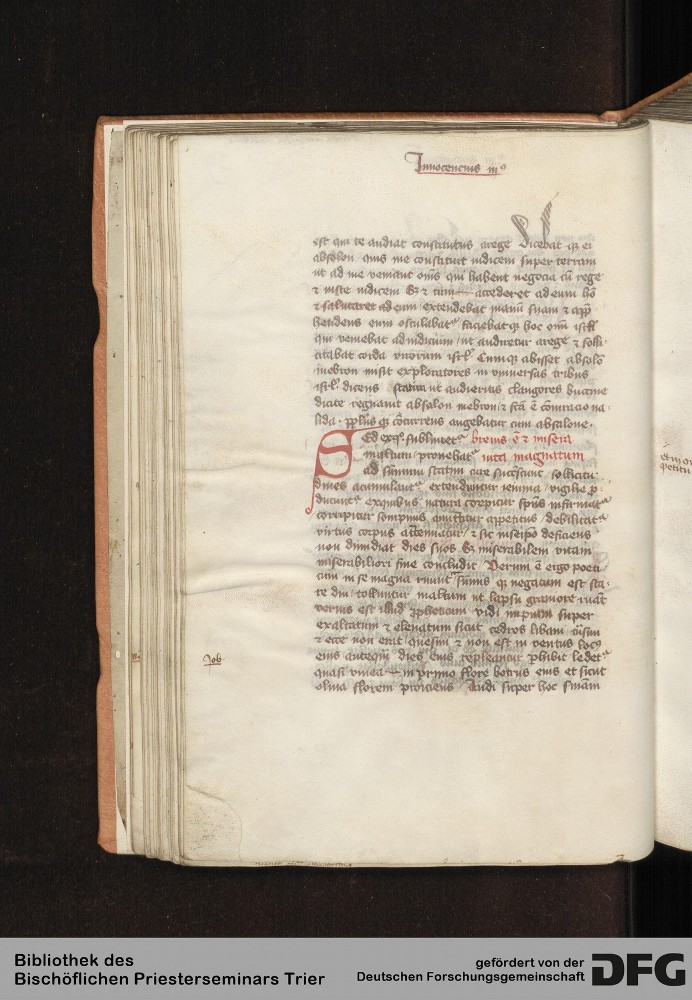 Innocencius iij⁹
est qui te audiat constitutus a rege Dicebat qz ei
absolon quis me constituit iudicem super terram
ut ad me veniant om̅s qui habent negocia cu̅ rege
z iuste iudicem Sz z cum accederet ad eum ho̅
z salutaret ad eum extendebat manu̅ suam z app̅
hendens eum osculabat faciebatqz hoc om̅i isrl̅
qui veniebat ad iudicium ut audiretur a rege z solli
citabat corda virorum isrl̅ Cumqz abisset absolo̅
in ebron misit exploratores in vniuersas tribus
isrl̅ dicens statim ut audieritis clangorem buccine
dicite regnauit absalon in ebron z fc̅a e̅ co̅iuracio ua
lida pp̅lus qz co̅currens augebatur cum absalone
Sed breuis e̅ z misera
malitum prouehat vita magnatum
ad summu̅ statim cure succrescunt sollicitu
dines acumulant extenduntur ieiunia vigilie p
ducunt ex quibus natura corrpitur sp̅us infirmat
corrumpitur sompnus amittitur appetitus debilitat
virtus corpus attenuatur z sic in seipso deficiens
non dimidiat dies suos Sz miserabilem vitam
miserabiliori fine concludit Verum e̅ ergo poeti
cum in se magna ruunt summis qz negatum est sta
re diu tolluntur in altum ut lapsu grauiore rua̅t
verius est illud propheticum vidi impium super
exaltatum z eleuatum sicut cedros libani t̅nsiui
z ecce non erat quesiui z non est inuentus loc⁹
eius anteq̅m dies eius repleantur peribit ledet
quasi vinea in primo flore botrus eius et sicut
oliua florem proiciens Audi super hoc s̅niam
Job
Bibliothek des
Bischöflichen Priesterseminars Trier
gefördert von der
Deutschen Forschungsgemeinschaft
DFG